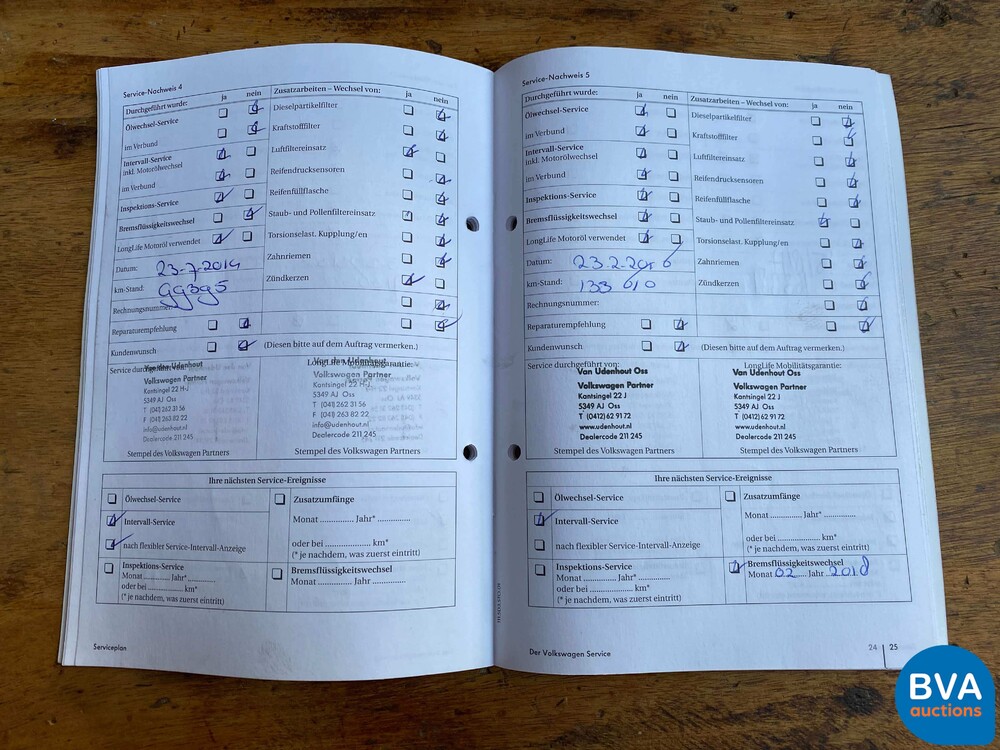 Service-Nachweis 4
Durchgeführt wurde: ja nein
Ölwechsel-Service
im Verbund
Intervall-Service
inkl. Motorölwechsel
im Verbund
Inspektions-Service
Bremsflüssigkeitswechsel
LongLife Motoröl verwendet
Datum: 23-7-2014
km-Stand: 99395
Rechnungsnummer:
Reparaturempfehlung
Kundenwunsch
Zusatzarbeiten – Wechsel von: ja nein
Dieselpartikelfilter
Kraftstofffilter
Luftfiltereinsatz
Reifendrucksensoren
Reifenfüllflasche
Staub- und Pollenfiltereinsatz
Torsionselast. Kupplung/en
Zahnriemen
Zündkerzen
(Diesen bitte auf dem Auftrag vermerken.)
Service durchgeführt von:
Van den Udenhout
Volkswagen Partner
Kantsingel 22 H-J
5349 AJ Oss
T (041) 262 31 56
F (041) 263 82 22
info@udenhout.nl
Dealercode 211 245
LongLife Mobilitätsgarantie:
Van den Udenhout
Volkswagen Partner
Kantsingel 22 H-J
5349 AJ Oss
T (041) 262 31 56
F (041) 263 82 22
info@udenhout.nl
Dealercode 211 245
Stempel des Volkswagen Partners
Ihre nächsten Service-Ereignisse
Ölwechsel-Service
Intervall-Service
nach flexibler Service-Intervall-Anzeige
Inspektions-Service
Monat .......... Jahr* ..........
oder bei .................... km*
(* je nachdem, was zuerst eintritt)
Zusatzumfänge
Monat ............. Jahr* .............
oder bei .................... km*
(* je nachdem, was zuerst eintritt)
Bremsflüssigkeitswechsel
Monat ............. Jahr .............
Serviceplan
Service-Nachweis 5
Durchgeführt wurde: ja nein
Ölwechsel-Service
im Verbund
Intervall-Service
inkl. Motorölwechsel
im Verbund
Inspektions-Service
Bremsflüssigkeitswechsel
LongLife Motoröl verwendet
Datum: 23-2-2016
km-Stand: 133 010
Rechnungsnummer:
Reparaturempfehlung
Kundenwunsch
Zusatzarbeiten – Wechsel von: ja nein
Dieselpartikelfilter
Kraftstofffilter
Luftfiltereinsatz
Reifendrucksensoren
Reifenfüllflasche
Staub- und Pollenfiltereinsatz
Torsionselast. Kupplung/en
Zahnriemen
Zündkerzen
(Diesen bitte auf dem Auftrag vermerken.)
Service durchgeführt von:
Van Udenhout Oss
Volkswagen Partner
Kantsingel 22 J
5349 AJ Oss
T (0412) 62 91 72
www.udenhout.nl
Dealercode 211 245
LongLife Mobilitätsgarantie:
Van Udenhout Oss
Volkswagen Partner
Kantsingel 22 J
5349 AJ Oss
T (0412) 62 91 72
www.udenhout.nl
Dealercode 211 245
Stempel des Volkswagen Partners
Stempel des Volkswagen Partners
Ihre nächsten Service-Ereignisse
Ölwechsel-Service
Intervall-Service
nach flexibler Service-Intervall-Anzeige
Inspektions-Service
Monat .......... Jahr* ..........
oder bei .................... km*
(* je nachdem, was zuerst eintritt)
Zusatzumfänge
Monat ............. Jahr* .............
oder bei .................... km*
(* je nachdem, was zuerst eintritt)
Bremsflüssigkeitswechsel
Monat 02 Jahr 2018
Der Volkswagen Service
24 25
BVA
auctions